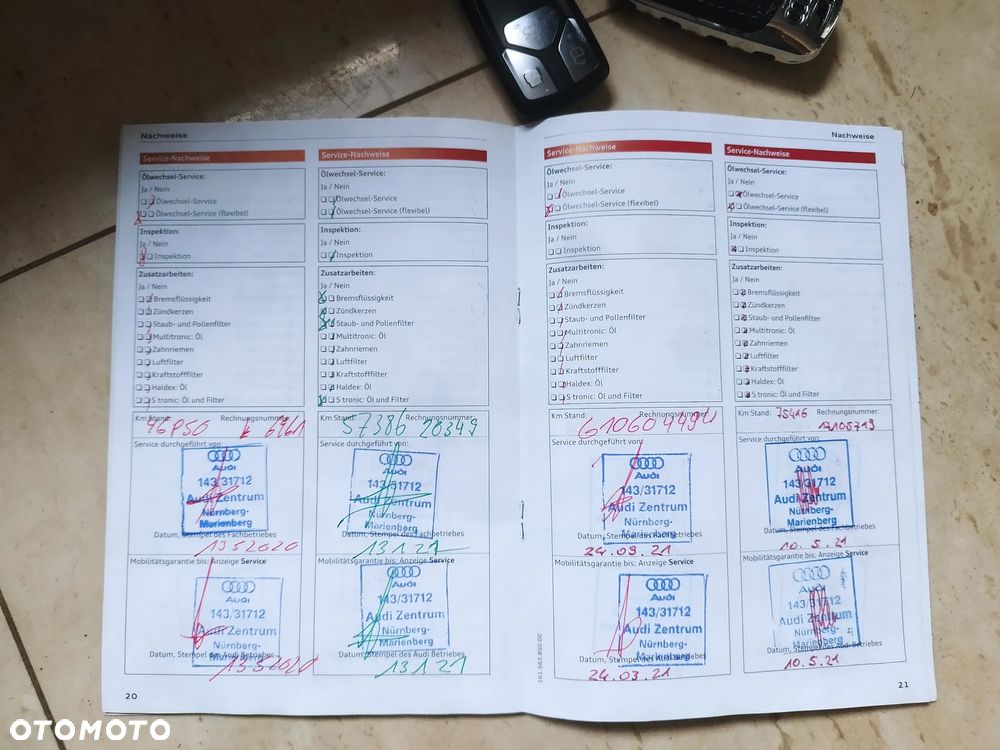 Nachweise
Service-Nachweise
Ölwechsel-Service:
Ja / Nein
Ölwechsel-Service
Ölwechsel-Service (flexibel)
Inspektion:
Ja / Nein
Inspektion
Zusatzarbeiten:
Ja / Nein
Bremsflüssigkeit
Zündkerzen
Staub- und Pollenfilter
Multitronic: Öl
Zahnriemen
Luftfilter
Kraftstofffilter
Haldex: Öl
S tronic: Öl und Filter
Km Stand: Rechnungsnummer:
6961
Service durchgeführt von:
Audi
143/31712
Audi Zentrum
Nürnberg-
Marienberg
Datum, Stempel des Fachbetriebes
13 5 2020
Mobilitätsgarantie bis: Anzeige Service
Audi
143/31712
Audi Zentrum
Nürnberg-
Marienberg
Datum, Stempel des Audi Betriebes
13 5 2020
20
Service-Nachweise
Ölwechsel-Service:
Ja / Nein
Ölwechsel-Service
Ölwechsel-Service (flexibel)
Inspektion:
Ja / Nein
Inspektion
Zusatzarbeiten:
Ja / Nein
Bremsflüssigkeit
Zündkerzen
Staub- und Pollenfilter
Multitronic: Öl
Zahnriemen
Luftfilter
Kraftstofffilter
Haldex: Öl
S tronic: Öl und Filter
Km Stand: Rechnungsnummer:
57386 28349
Service durchgeführt von:
Audi
143/31712
Audi Zentrum
Nürnberg-
Marienberg
Datum, Stempel des Fachbetriebes
13 1 21
Mobilitätsgarantie bis: Anzeige Service
Audi
143/31712
Audi Zentrum
Nürnberg-
Marienberg
Datum, Stempel des Audi Betriebes
13 1 21
Nachweise
Service-Nachweise
Ölwechsel-Service:
Ja / Nein
Ölwechsel-Service
Ölwechsel-Service (flexibel)
Inspektion:
Ja / Nein
Inspektion
Zusatzarbeiten:
Ja / Nein
Bremsflüssigkeit
Zündkerzen
Staub- und Pollenfilter
Multitronic: Öl
Zahnriemen
Luftfilter
Kraftstofffilter
Haldex: Öl
S tronic: Öl und Filter
Km Stand: Rechnungsnummer:
61060
Service durchgeführt von:
Audi
143/31712
Audi Zentrum
Nürnberg-
Marienberg
Datum, Stempel des Fachbetriebes
24.03.21
Mobilitätsgarantie bis: Anzeige Service
Audi
143/31712
Audi Zentrum
Nürnberg-
Marienberg
Datum, Stempel des Audi Betriebes
24.03.21
161.563.850.00
Service-Nachweise
Ölwechsel-Service:
Ja / Nein
Ölwechsel-Service
Ölwechsel-Service (flexibel)
Inspektion:
Ja / Nein
Inspektion
Zusatzarbeiten:
Ja / Nein
Bremsflüssigkeit
Zündkerzen
Staub- und Pollenfilter
Multitronic: Öl
Zahnriemen
Luftfilter
Kraftstofffilter
Haldex: Öl
S tronic: Öl und Filter
Km Stand: 75416 Rechnungsnummer:
Service durchgeführt von:
Audi
143/31712
Audi Zentrum
Nürnberg-
Marienberg
Datum, Stempel des Fachbetriebes
10.5.21
Mobilitätsgarantie bis: Anzeige Service
Audi
143/31712
Audi Zentrum
Nürnberg-
Marienberg
Datum, Stempel des Audi Betriebes
10.5.21
21
OTOMOTO